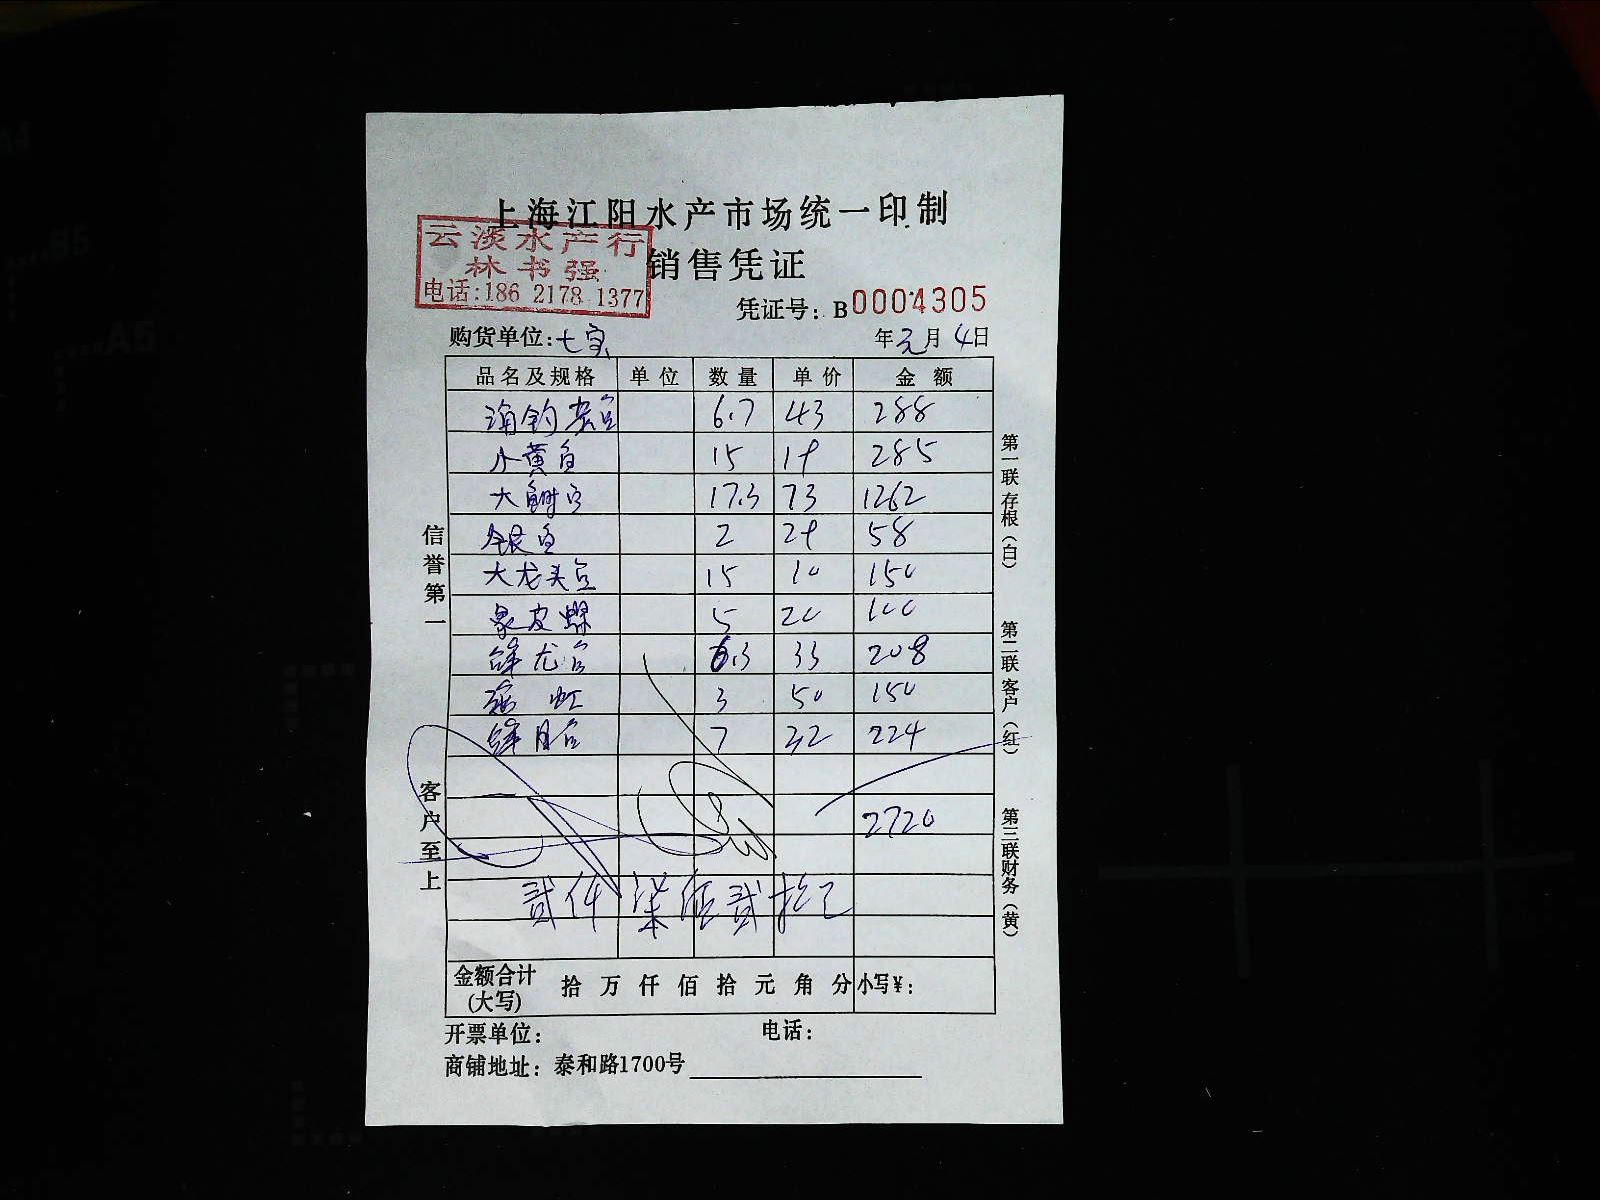 上海江阳水产市场统一印制
云淡水产行
林书强
电话:186 2178 1377
销售凭证
凭证号: B0004305
购货单位:七宝 年元月4日
品名及规格 单位 数量 单价 金额
6.7 43 288
小黄鱼 15 19 285
大鲥鱼 17.3 73 1262
银鱼 2 29 58
大龙头鱼 15 10 150
象皮蝶 5 20 100
龙鱼 6.3 33 208
虹 3 50 150
月鱼 7 32 224
2720
贰仟柒佰贰拾元
金额合计(大写) 拾万仟佰拾元角分 小写¥:
开票单位: 电话:
商铺地址: 泰和路1700号
信誉第一
客户至上
第一联存根(白)
第二联客户(红)
第三联财务(黄)